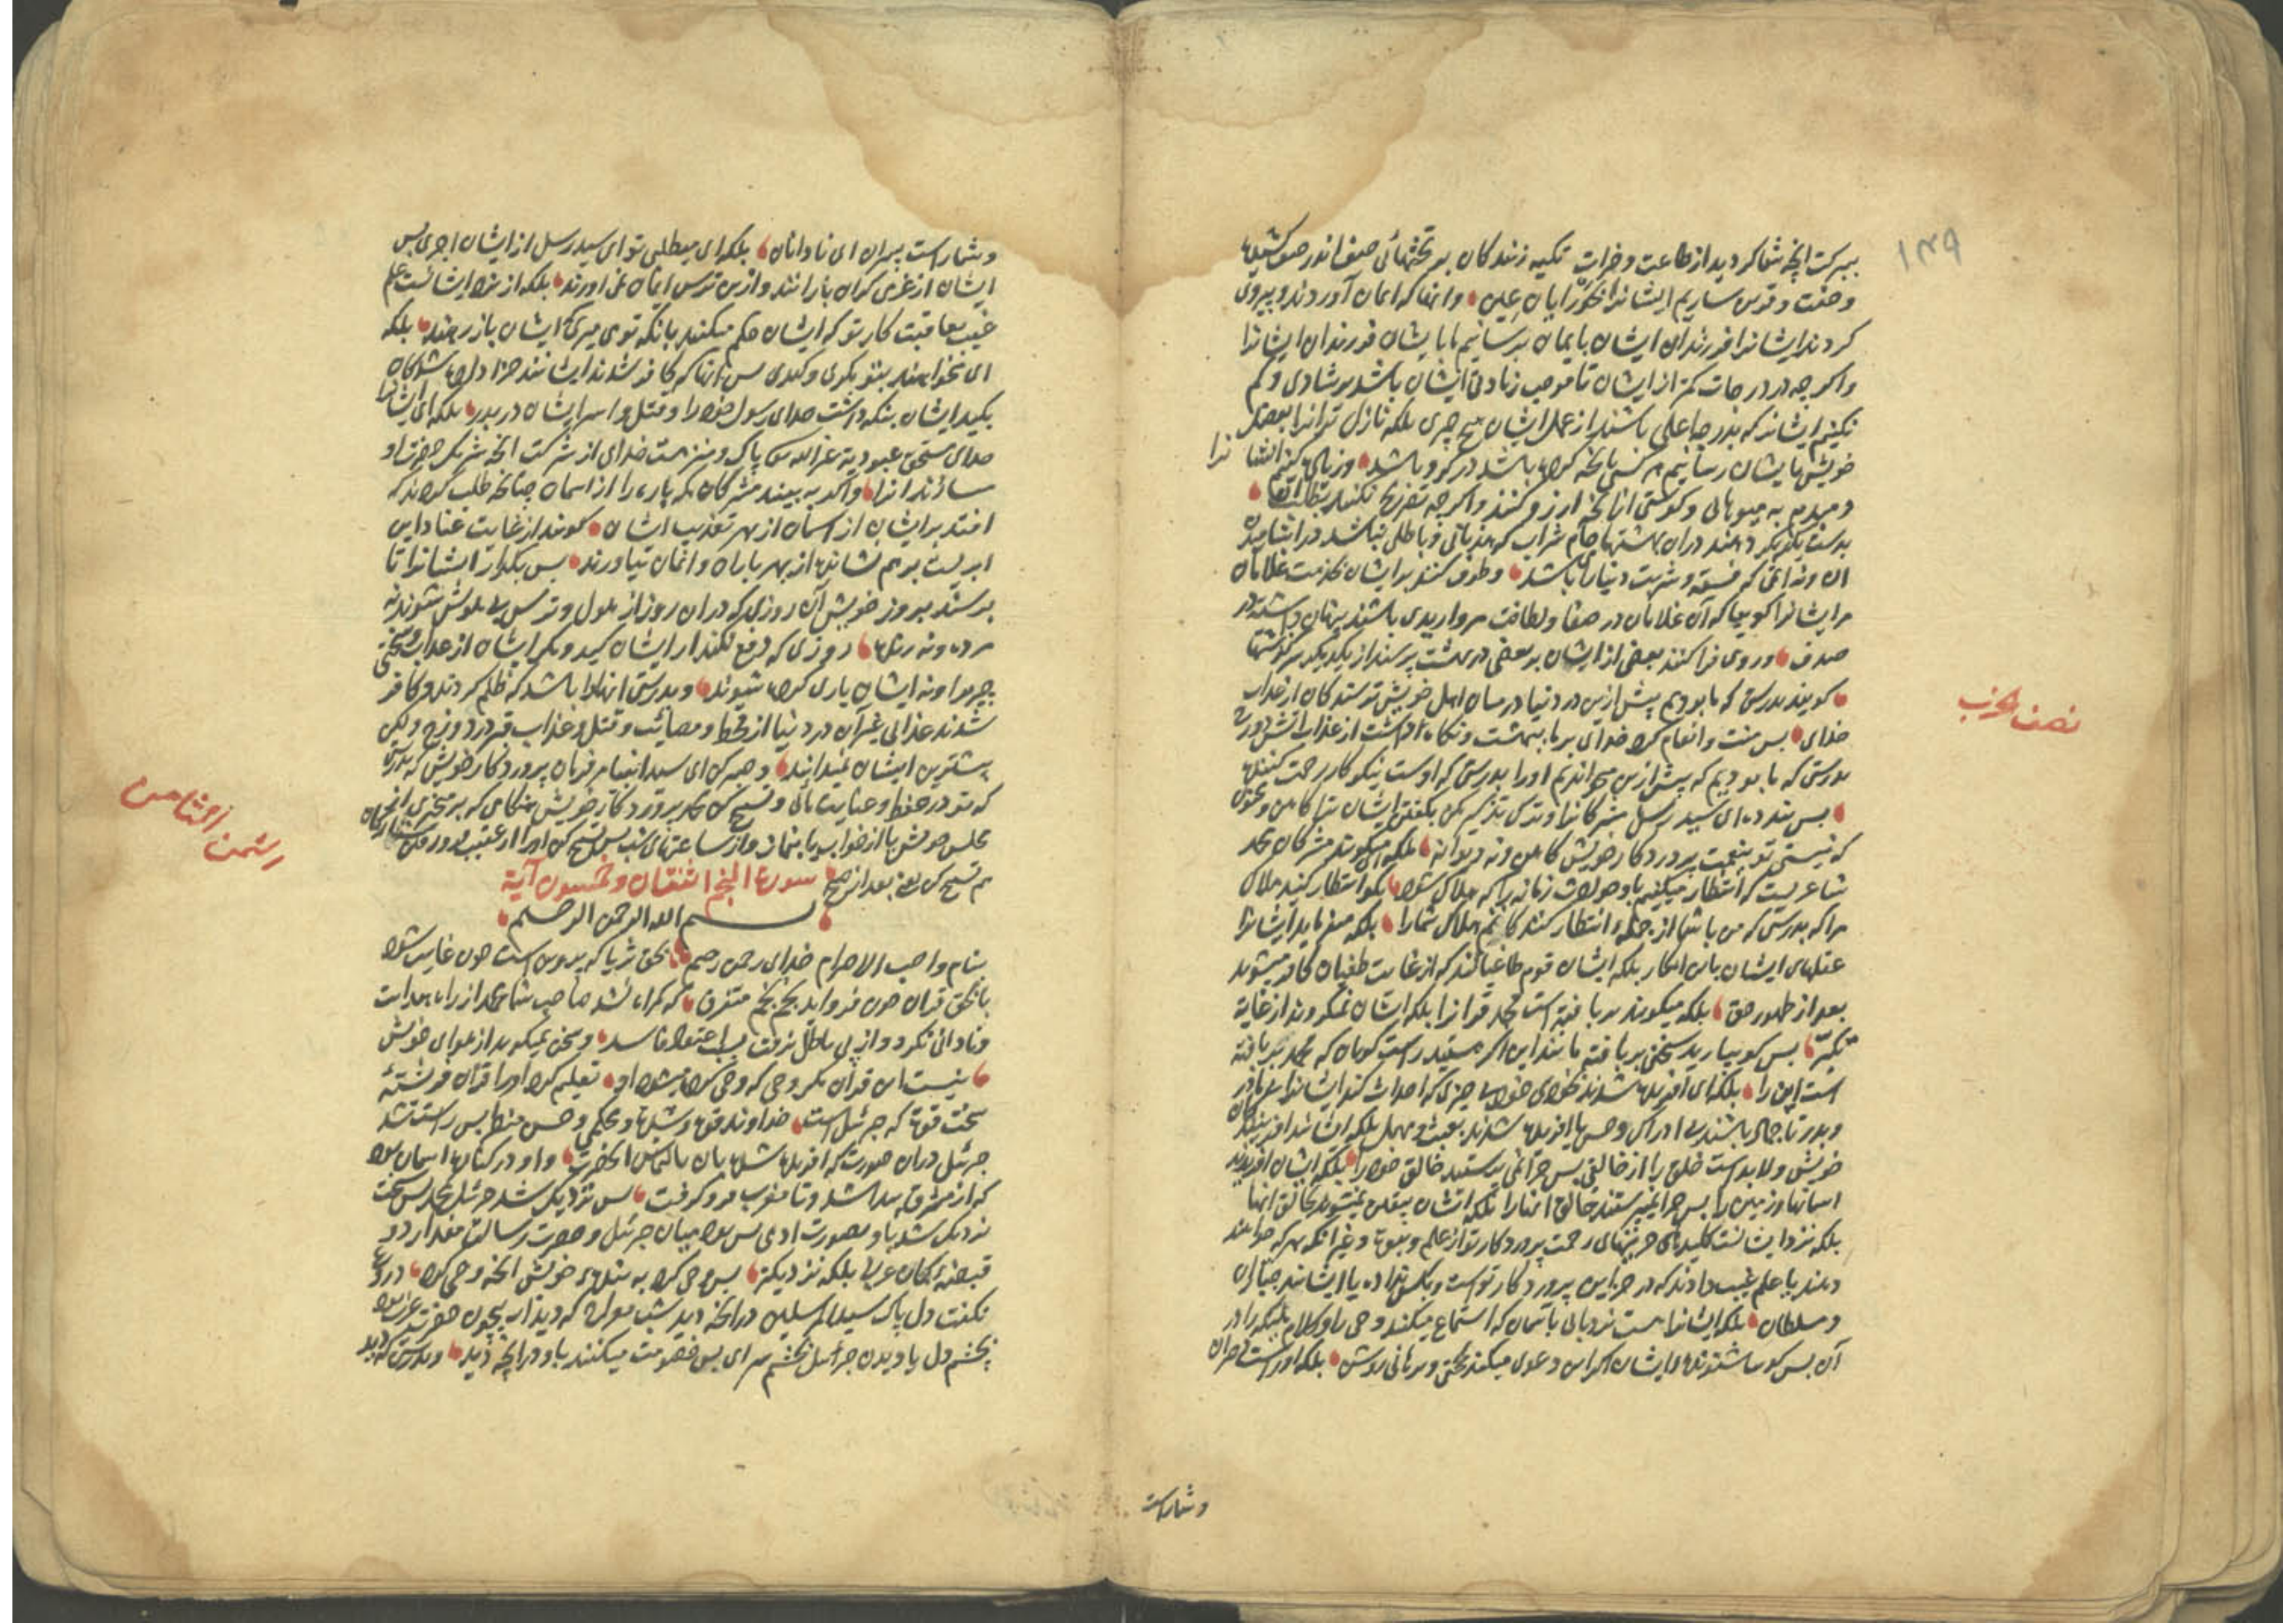 ۱۳۹
ببرکت آنچه شما کردید از طاعت و خیرات تکیه زنندگان بر تختهائی صف اندر صف کشیده
و جفت و قرین سازیم ایشانرا بحورایان عین وانها که ایمان آوردند و پیروی
کردند ایشانرا فرزندان ایشان بایمان برسانیم بایشان فرزندان ایشانرا
واکرچه در درجات کمتر از ایشان تا موجب زیادتی ایشان باشد بر شادی و کم
نکنیم ایشانرا که بدرجه اعلی باشند از عمل ایشان هیچ چیزی بلکه نازل تر انرا بفضل
خویش بایشان رسانیم هر کسی بانچه کرده باشد در کرو باشد وزیاده کنیم
و میدهم به میوهائی و کوشتی ازانچه ارزو کنند واکرچه تصریح نکنند بطلب آنها
بدست یکدیکر دهند دران بهشتها جام شراب که هذیانی و باطلی نباشد در آشامیدن
ان ونه اثمی که فسق و شربت دنیا را باشد وطوف کنند بر ایشان بخدمت غلامان
مر ایشانرا کوییا که آن غلامان در صفا و لطافت مرواریدی باشند پنهان داشته در
صدف وروی فرا کنند بعضی از ایشان بر بعضی در بهشت پرسند از یکدیکر سرکذشتها
کویند بدرستی که ما بودیم پیش ازین در دنیا در میان اهل خویش ترسندکان از عذاب
نصف حزب
خدای پس منت و انعام کرد خدای بر ما ببهشت ونکاه داشت از عذاب آتش دوزخ
بدرستی که ما بودیم که پیش ازین میخواندیم اورا بدرستی که اوست نیکوکار رحمت کننده
پس پند ده ای سید رسل مشرکانرا و ترک تذکیر مکن بکفتن ایشان ترا کاهن و مجنون
که نیستی تو بنعمت پروردکار خویش کاهن ونه دیوانه بلکه میکویند مشرکان محمد
شاعریست که انتظار میکشیم باو حوادث زمانه را که هلاک شود بکو انتظار کشید هلاک
مرا که بدرستی که من با شما از جمله انتظار کنندکانم هلاک شمارا بلکه میفرماید ایشانرا
عقلهای ایشان باین انکار بلکه ایشان قوم طاغیانند که از غایت طغیان کافر میشوند
بعد از ظهور حق بلکه میکویند بر بافته است محمد قرآنرا بلکه ایشان نمیکروند از غایة
تکبر پس کو بیارید سخنی بر بافته مانند این اکر هستید راست کویان که محمد بر بافته
است این را بلکه ای آفریده شدند بخودی خود بی چیزی که احداث کند ایشانرا بی مادر
وبدر تا جماد باشند بی ادراک و حس یا آفریده شدند بعبث و مهمل بلکه ایشانند افرینندکان
خویش ولابد است خلق را از خالقی پس چرا نمی پرستند خالق خود را بلکه ایشان افریدند
اسمانها و زمین را پس چرا نمیپرستند خالق انها را بلکه ایشان بیقین نمیشوند بخالق انها
بلکه نزد ایشانست کلیدهای خزینهای رحمت پروردکار تو از علم و نبوت و غیر آنکه بهر که خواهند
دهند یا علم غیب دارند که در خزاین پروردکار تو است وبکس نداده یا ایشانند جباران
و سلطان بلکه ایشانرا هست نردبانی باسمان که استماع میکنند وحی را و کلام ملایکه را در
آن پس کو بیا شنونده ایشان اکر این دعوی میکند بحجتی و برهانی روشن بلکه اوراست دختران
وشماراست
وشماراست پسران ای نادانان بلکه ای میطلبی تو ای سید رسل از ایشان اجری پس
ایشان از غرمی کران بارانند وازین ترس ایمان نمی اورند بلکه از نزد ایشانست علم
غیب بعاقبت کار تو که ایشان حکم میکنند بانکه تو می میری که ایشان باز رهند بلکه
ای میخواهند بتو مکری وکیدی پس انها که کافر شدند ایشانند جزا داده شدکان
بکید ایشان بنکه داشت خدای رسول خود را و قتل و اسر ایشان در بدر بلکه ای ایشانرا
خدای مستحق عبودیة غیر الله است پاک ومنزهست خدای از شرکت انچه شریک حضرت او
سازند انرا واکر به بینند مشرکان که پاره را از اسمان چنانچه طلب کردند که
افتد بر ایشان از اسمان از بهر تعذیب ایشان کویند از غایت عناد این
ابریست بر هم نشانده از بهر باران و ایمان نیاورند پس بکذار ایشانرا تا
برسند بروز خویش آن روزی که دران روز از هول و ترس بی هوش شوند نه
مرده ونه زنده روزی که دفع نکند از ایشان کید ومکر ایشان از عذاب و سختی
چیزی را ونه ایشان یاری کرده شوند وبدرستی انها را باشد که ظلم کردند و کافر
شدند عذابی غیر آن در دنیا از قحط و مصائب و قتل و عذاب قبر در دوزخ ولیکن
پیشترین ایشان نمیدانند وصبر کن ای سید انبیا مر فرمان پروردکار خویش که بدرستی
که تو در حفظ و حمایت مائی وتسبیح کن بحمد پروردکار خویش هنکامی که برخیزی از
مجلس خویش یا از خواب یا بنماز واز ساعتهای شب پس تسبیح کن اورا از عقب فرو رفتن ستارکان
هم تسبیح کن یعنی بعد از صبح سورة النجم اثنتان و خمسون آیة
بسم الله الرحمن الرحیم
بنام واجب الاحترام خدای رحمن رحیم بحق ثریا که پروین است چون غایب شود
یا بحق قران چون فرو آید نجم نجم متفرق که کمراه نشد صاحب شما محمد از راه هدایت
ونادانی نکرد واز پی باطل نرفت بسبب اعتقاد فاسد وسخن نمیکوید از هوای خویش
نیست این قران مکر وحی که وحی کرده میشود او تعلیم کرد اورا قران فرشتهٔ
سخت قوة که جبرئیل است خداوند قوة وشدة ومحکمی وحسن منظر پس راست شد
جبرئیل دران صورت که افریده شده بان بالتماس آنحضرت واو در کنارهٔ اسمان بود
که از مشرق پیدا شد و تا مغرب فرو کرفت پس نزدیک شد جبرئیل بمحمد پس سخت
نزدیک شد باو بصورت ادمی پس بود میان جبرئیل و حضرت رسالت مقدار دو
قبضهٔ کمان عربی بلکه نزدیکتر پس وحی کرد به بندهٔ خویش انچه وحی کرد دروغ
نکفت دل پاک سید المرسلین درانچه دید شب معراج که دیدار بیچون حضرت عزت بود
بچشم دل یا دیدن جبرئیل بچشم سر ای پس خصومت میکنید باو درانچه دید وبدرستی که دید